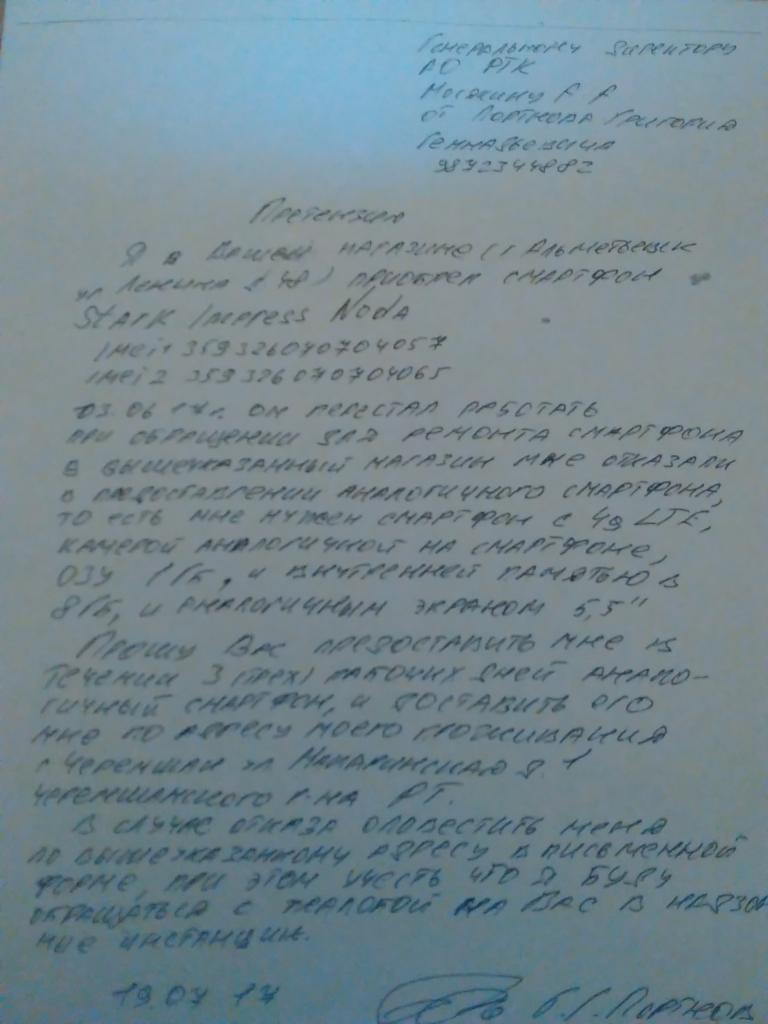 Генеральному директору
АО РТК
от Портнова Григория
Геннадьевича
9872344882
Претензия
Я в Вашем магазине (г Альметьевск
ул Ленина д 48) приобрел смартфон
Stark Impress Noda
imei1 359326070704057
imei 2 359326070704065
03.06 17г. он перестал работать
при обращении для ремонта смартфона
в вышеуказанный магазин мне отказали
в предоставлении аналогичного смартфона,
то есть мне нужен смартфон с 4g LTE,
камерой аналогичной на смартфоне,
ОЗУ 1 Гб, и внутренней памятью в
8 Гб, и аналогичным экраном 5,5"
Прошу Вас предоставить мне в
течении 3 (трех) рабочих дней анало-
гичный смартфон, и доставить его
мне по адресу моего проживания
ул д. 1
Черемшанского р-на РТ.
В случае отказа оповестить меня
по вышеуказанному адресу в письменной
форме, при этом учесть что я буду
обращаться с жалобой на Вас в надзор
ные инстанции.
19.07 17 Г.Г. Портнов